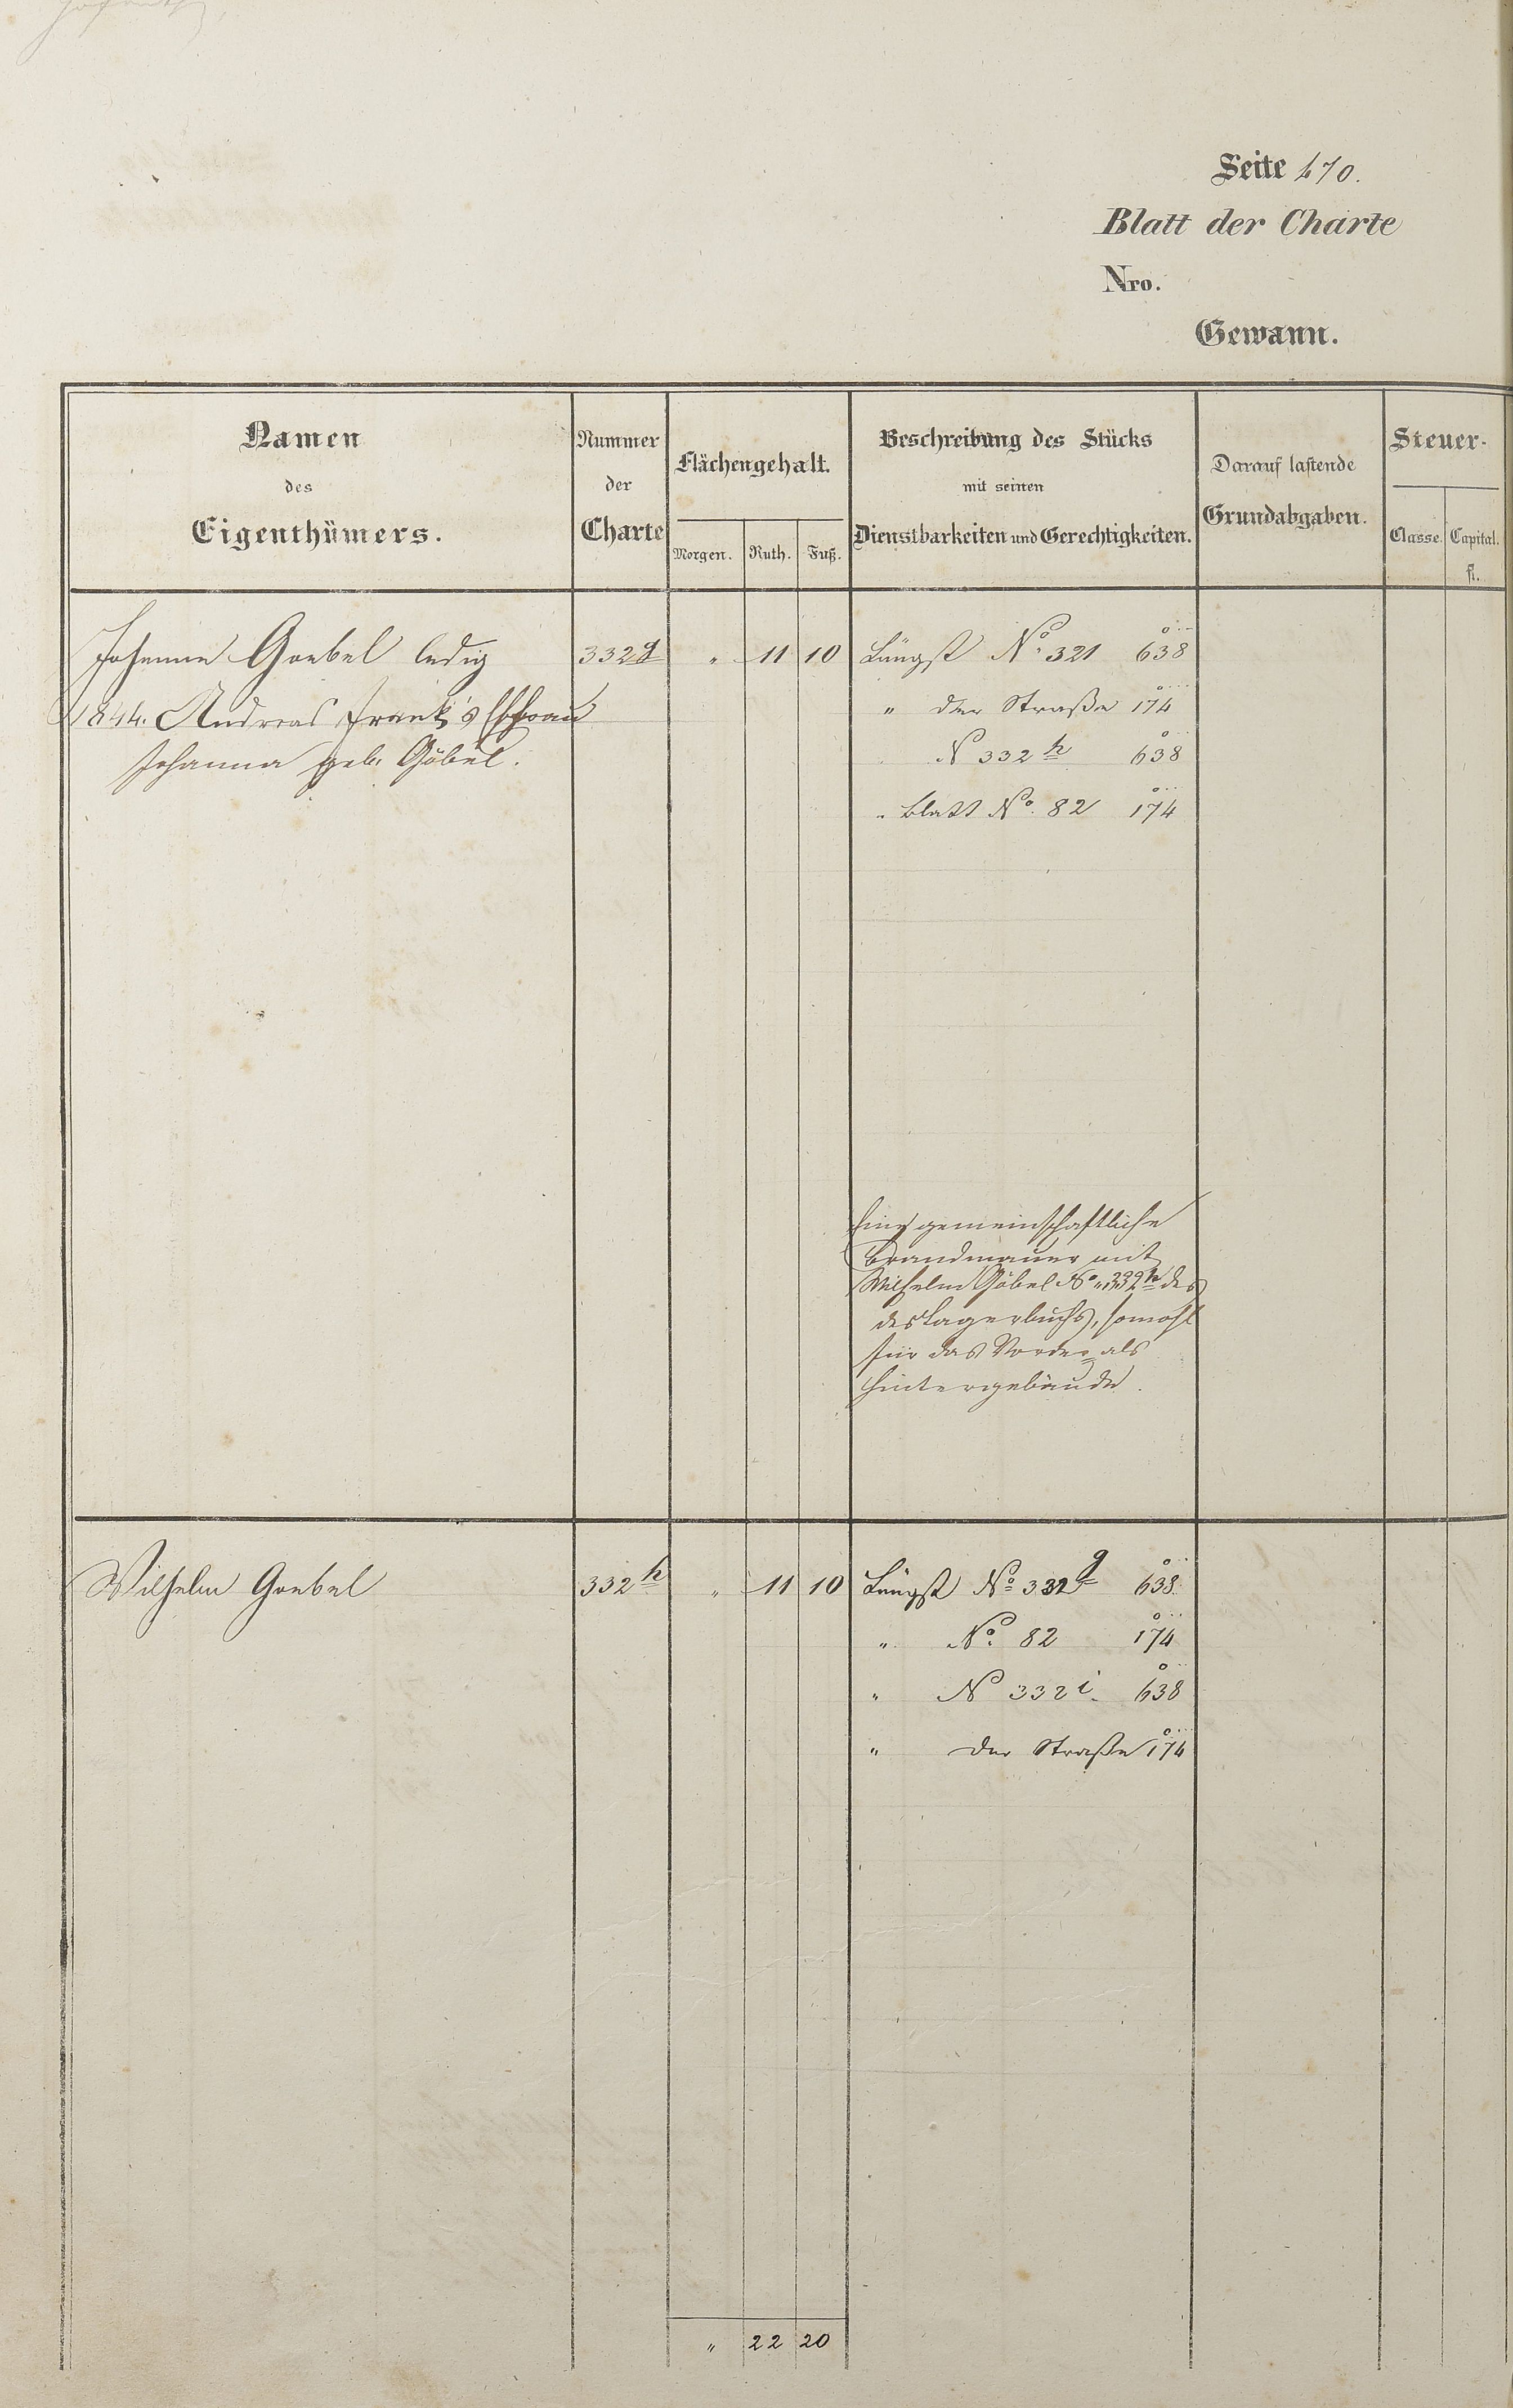 Seite 470.
Blatt der Charte
Nro.
Gewann.
Namen des Eigenthümers.
Nummer der Charte
Flächengehalt.
Morgen. Ruth. Fuß.
Beschreibung des Stücks mit seinen Dienstbarkeiten und Gerechtigkeiten.
Darauf lastende Grundabgaben.
Steuer-
Classe. Capital. fl.
Johanna Goebel ledig 332g " 11 10 Längst No. 321 638
1844. Andreas Frank's Ehefrau " der Straße 174
Johanna geb. Göbel. N 332h 638
" Blatt No. 82 174
Eine gemeinschaftliche
Brandmauer mit
Wilhelm Göbel No. 332h des
des Lagerbuchs, sowohl
für das Vorder als
Hintergebäude.
Wilhelm Goebel 332h " 11 10 Längst No 332g 638
" No. 82 174
" N 332i 638
" der Straße 174
" 22 20